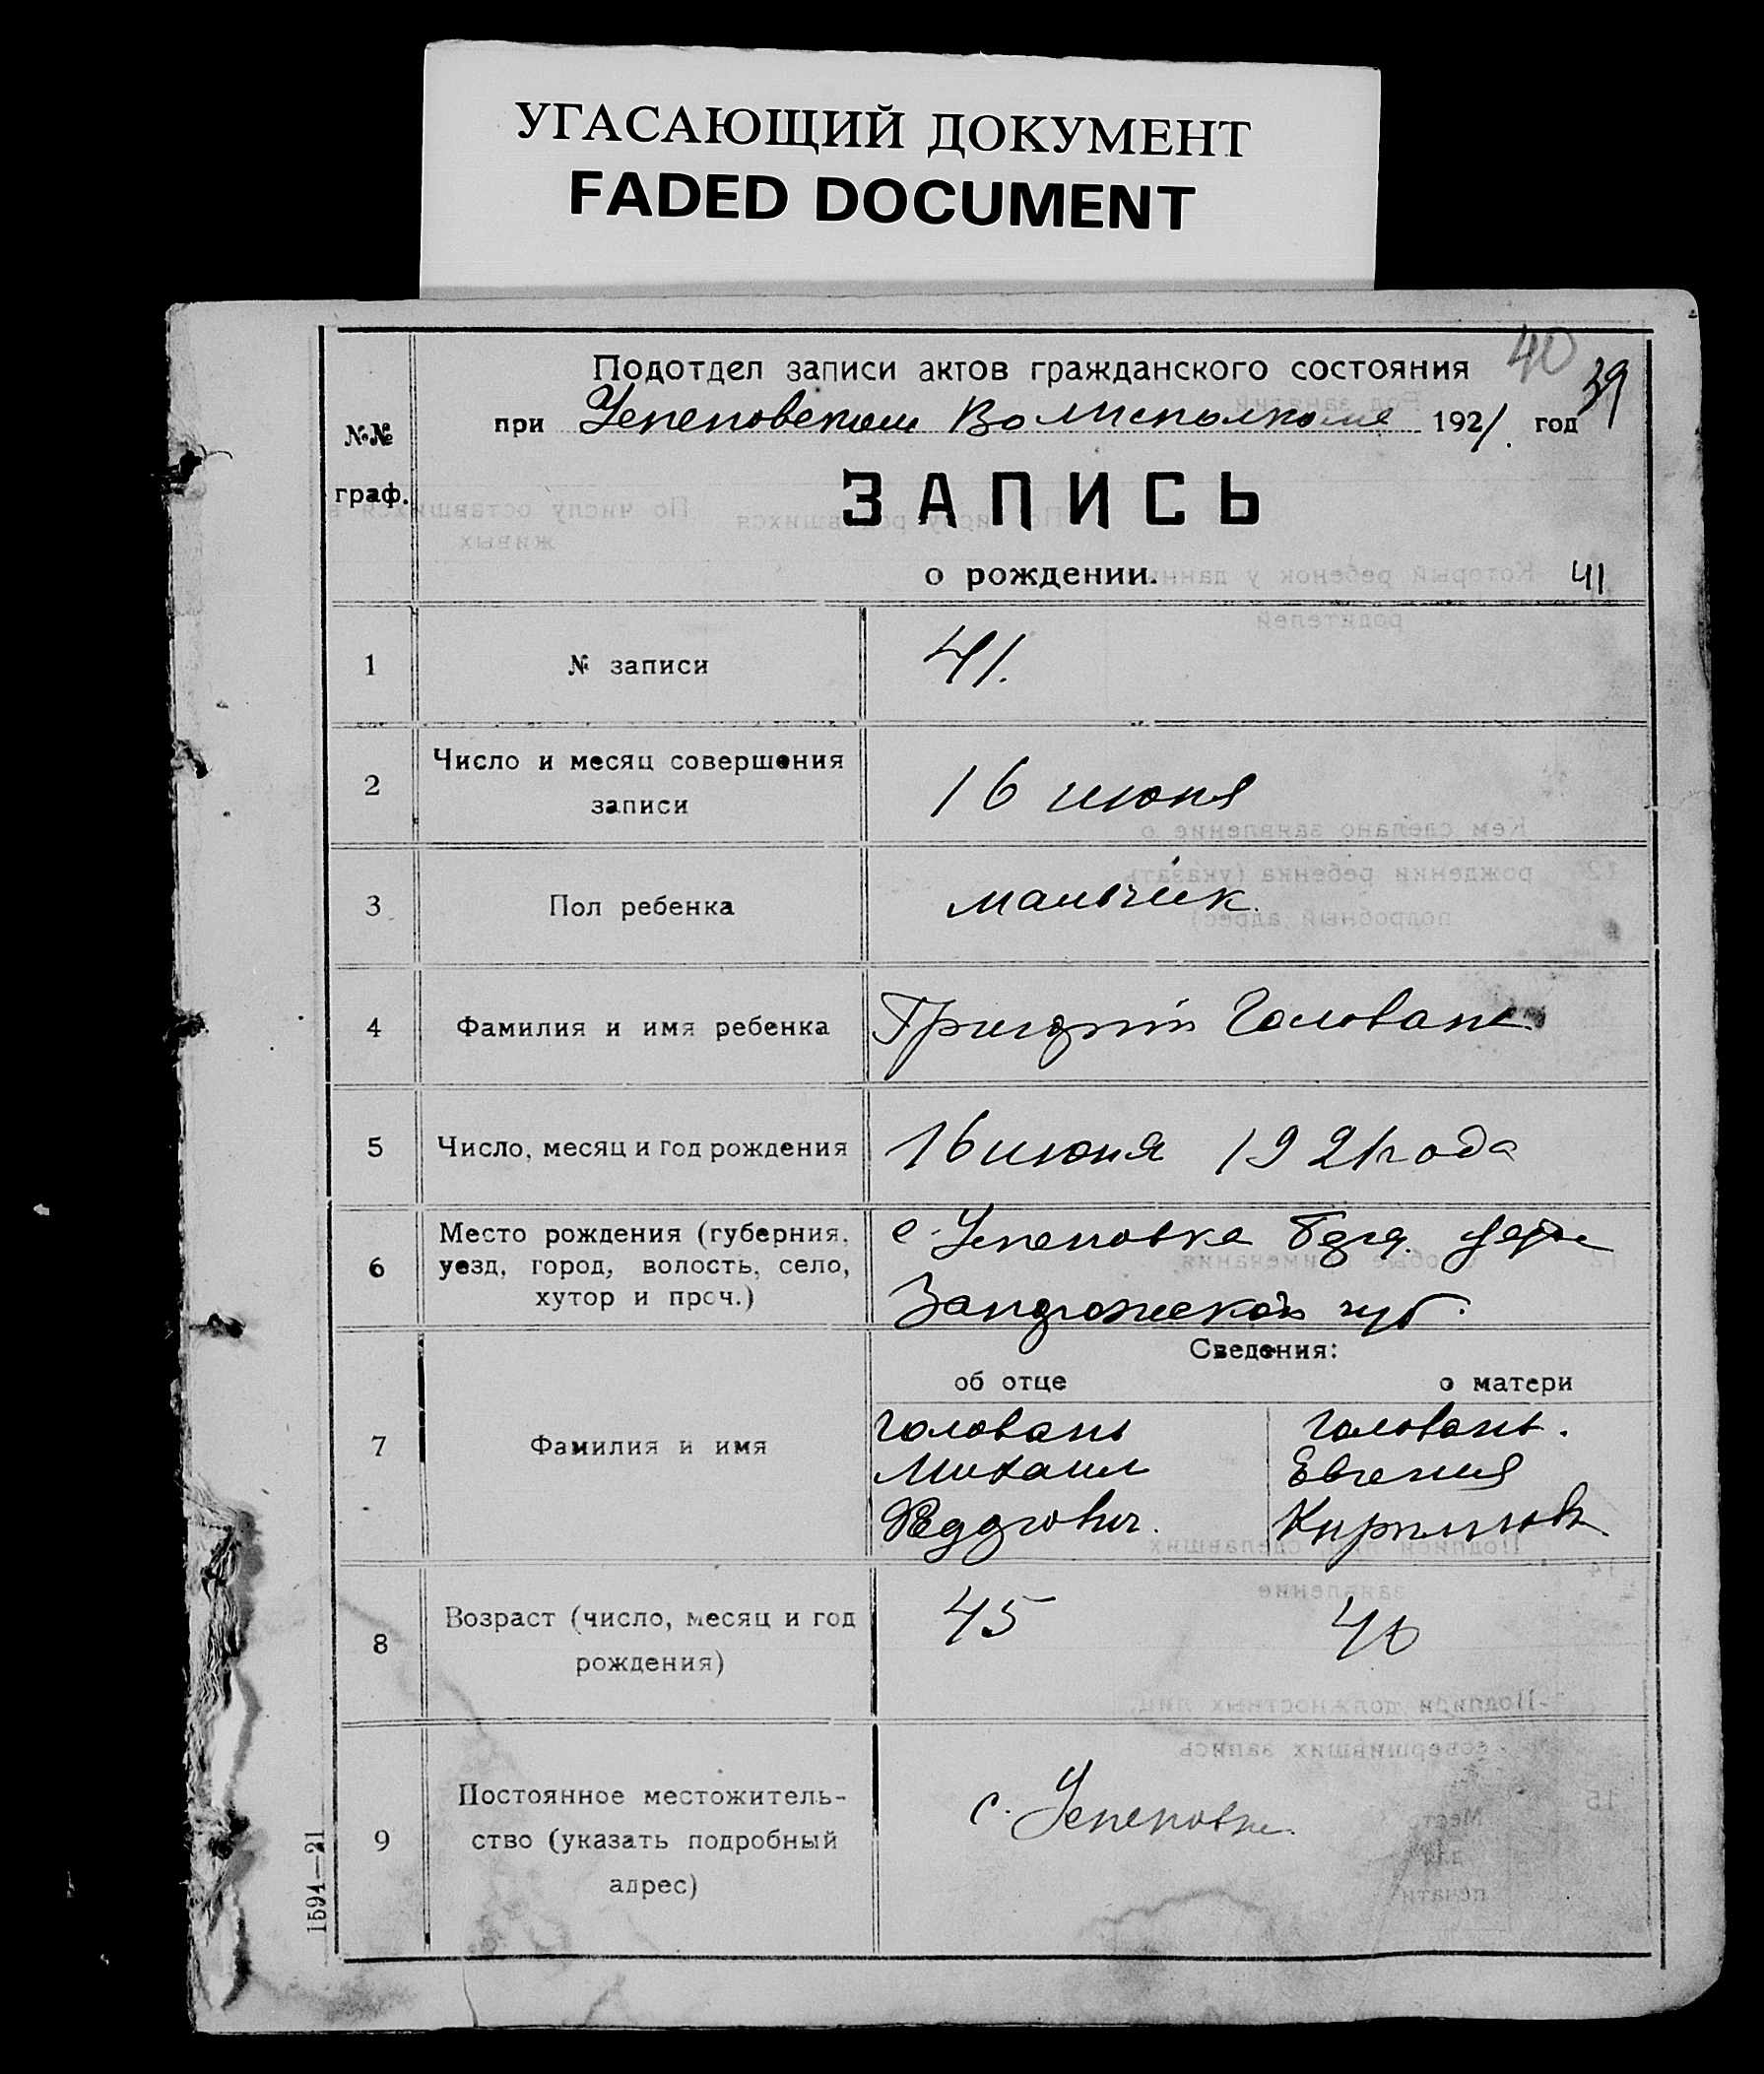 УГАСАЮЩИЙ ДОКУМЕНТ
FADED DOCUMENT
40
39
Подотдел записи актов гражданского состояния
при Успеновском Волисполкоме 1921. год
№№
граф.
ЗАПИСЬ
о рождении.
41
1 № записи 41.
2 Число и месяц совершения
записи
16 июня
3 Пол ребенка мальчик.
4 Фамилия и имя ребенка Григорій Головань
5 Число, месяц и год рождения 16 июня 1921 года
6 Место рождения (губерния,
уезд, город, волость, село,
хутор и проч.)
с. Успеновка
Запорожской губ.
Сведения:
об отце о матери
7 Фамилия и имя
Головань Головань.
Михаил Евгения
Федорович. Кирилловн.
8 Возраст (число, месяц и год
рождения)
45 40
9 Постоянное местожитель-
ство (указать подробный
адрес)
с. Успеновке.
1594—21